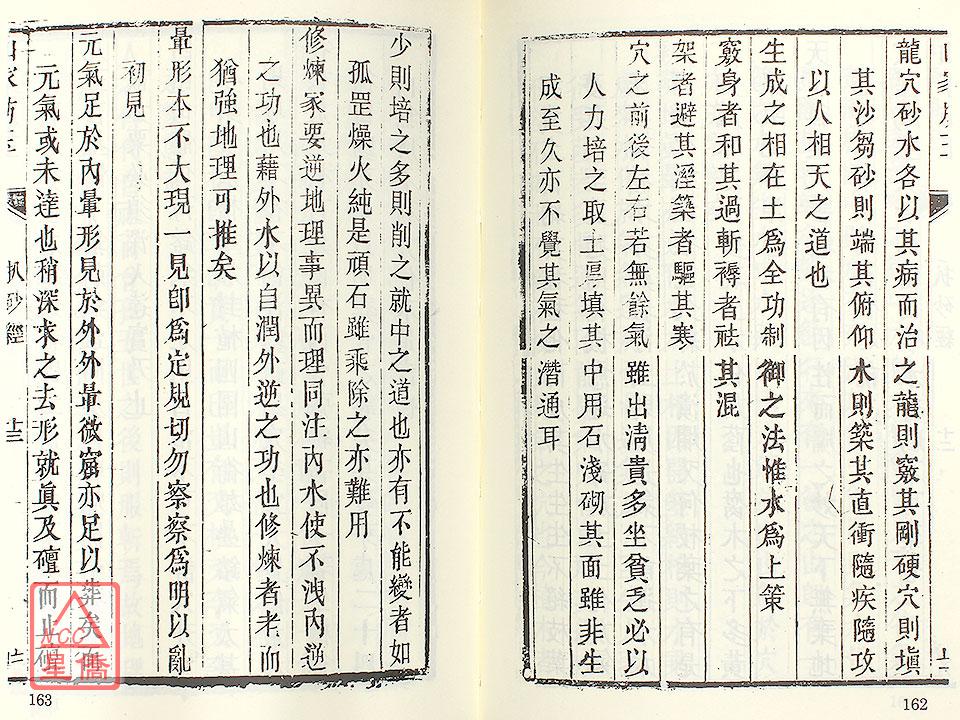 龍穴砂水各以其病而治之龍則竅其剛硬穴則塡
其沙芻砂則端其俯仰水則築其直衝隨疾隨攻
以人相天之道也
生成之相在土爲全功制御之法惟水爲上策
竅身者和其過斬褥者祛其混
架者避其溼築者驅其寒
穴之前後左右若無餘氣雖出淸貴多坐貧乏必以
人力培之取土厚填其中用石淺砌其面雖非生
成至久亦不覺其氣之潛通耳
162
少則培之多則削之就中之道也亦有不能變者如
孤罡燥火純是頑石雖乘除之亦難用
修煉家要逆地理事異而理同注內水使不洩內逆
之功也藉外水以自潤外逆之功也修煉者老而
猶強地理可推矣
暈形本不大現一見卽爲定規切勿察察爲明以亂
初見
元氣足於內暈形見於外外暈微窩亦足以葬矣而
元氣或未達也稍深求之去形就眞及礶而止礶
扒砂經
十三
163
NCC
星僑